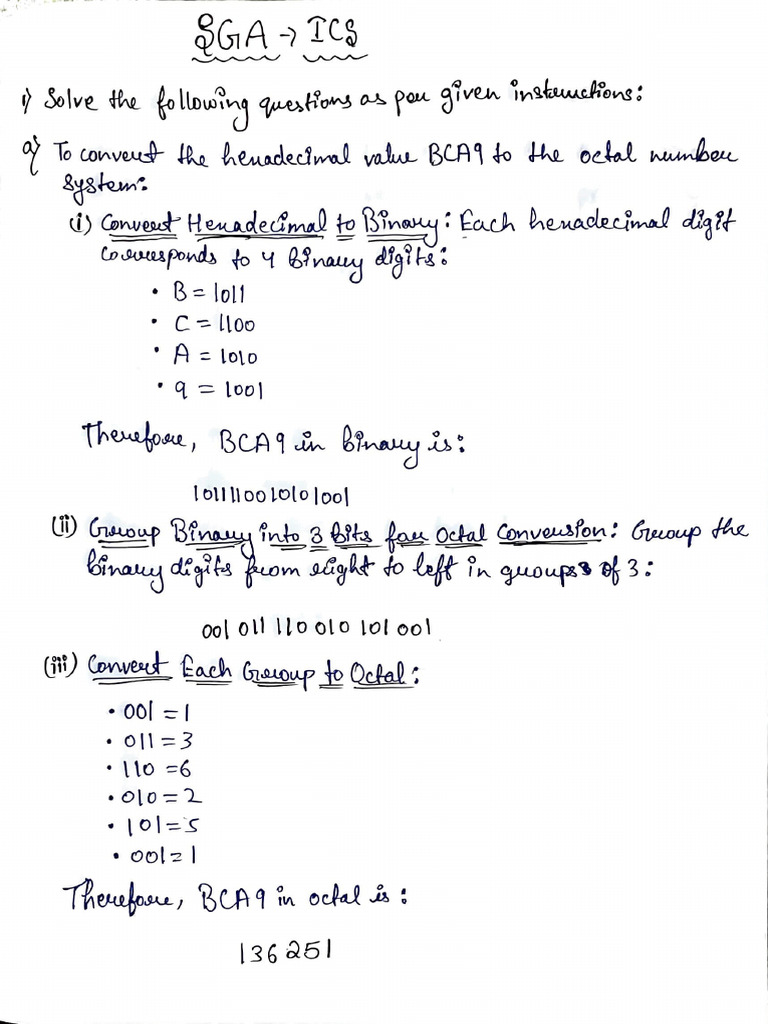 SGA → ICS
1) Solve the following questions as per given instructions:
a) To convert the hexadecimal value BCA9 to the octal number
system:
(i) Convert Hexadecimal to Binary: Each hexadecimal digit
corresponds to 4 binary digits:
• B = 1011
• C = 1100
• A = 1010
• 9 = 1001
Therefore, BCA9 in binary is:
1011110010101001
(ii) Group Binary into 3 Bits for Octal Conversion: Group the
binary digits from right to left in groups of 3:
001 011 110 010 101 001
(iii) Convert Each Group to Octal:
• 001 = 1
• 011 = 3
• 110 = 6
• 010 = 2
• 101 = 5
• 001 = 1
Therefore, BCA9 in octal is:
136251